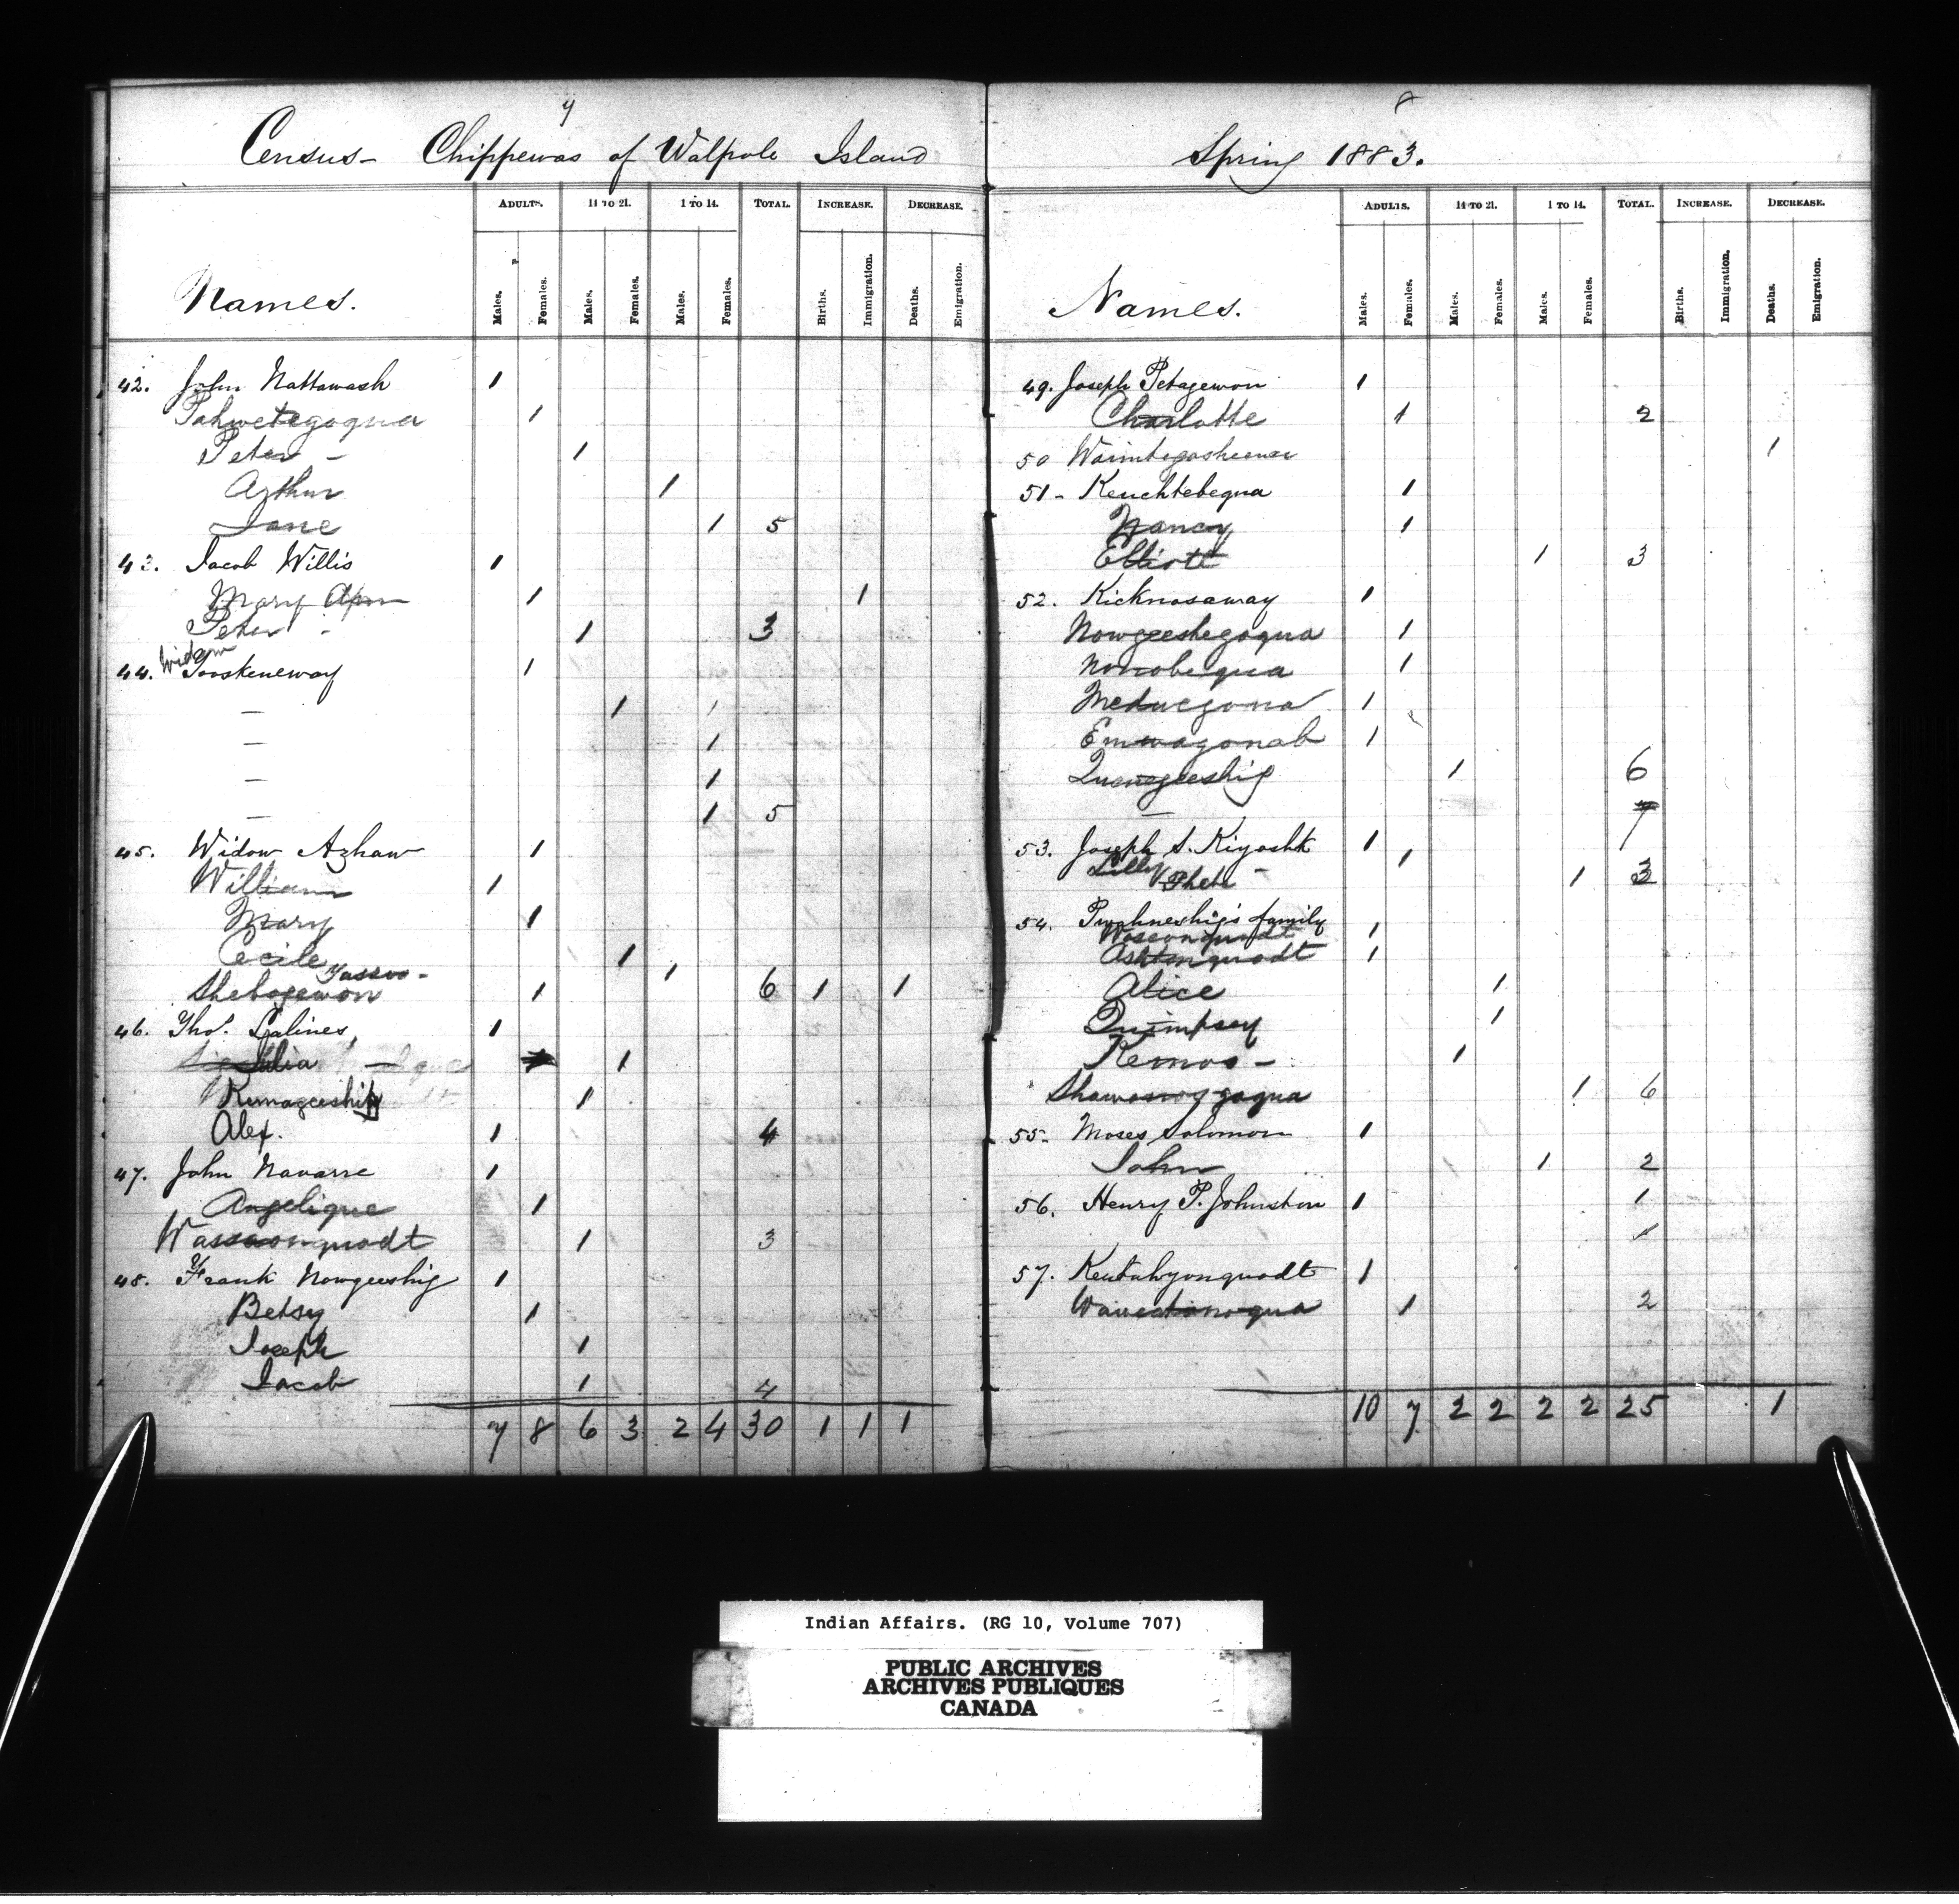 7
Census - Chippewas of Walpole Island
Names. ADULTS. Males. Females. 14 TO 21. Males. Females. 1 TO 14. Males. Females. TOTAL. INCREASE. Births. Immigration. DECREASE. Deaths. Emigration.
42. John Nattawash 1
Pahwetegoqua 1
Peter - 1
Arthur 1
Jane 1 5
43. Jacob Willis 1
Mary Ann 1 1
Peter - 1 3
Widow
44. Sooskeneway 1
— 1 1
— 1
— 1
— 1 5
45. Widow Azhaw 1
William 1
Mary 1
Cecile 1
Yassoo - 1
Shebogewon 1 6 1 1
46. Thos. Galines 1
Julia 1
Kemageeshik 1
Alex. 1 4
47. John Navarre 1
Angelique 1
Wassaonquodt 1 3
48. Frank Nowgeeshig 1
Betsy 1
Joseph 1
Jacob 1 4
7 8 6 3 2 4 30 1 1 1
8
Spring 1883.
Names. ADULTS. Males. Females. 14 TO 21. Males. Females. 1 TO 14. Males. Females. TOTAL. INCREASE. Births. Immigration. DECREASE. Deaths. Emigration.
49. Joseph Petagewon 1
Charlotte 1 2
50 1
51 - Keuchtebequa 1
Nancy 1
Elliott 1 3
52. Kicknosaway 1
Nowgeeshegoqua 1
Nonobequa 1
Medwegona 1
Emwagonab 1
Quenegeeshig 1 6
— 7
53. Joseph S. Kiyoshk 1
Lilly 1
Phebe - 1 3
54. Pwahneshig's family
Waseonquodt 1
Ashtonquodt 1
Alice 1
Quimpsey 1
Kemos - 1
Shawanoggoqua 1 6
55 - Moses Solomon 1
John 1 2
56. Henry P. Johnston 1 1
57. Keutahyonquodt 1
1 2
10 7 2 2 2 2 25 1
Indian Affairs. (RG 10, Volume 707)
PUBLIC ARCHIVES
ARCHIVES PUBLIQUES
CANADA